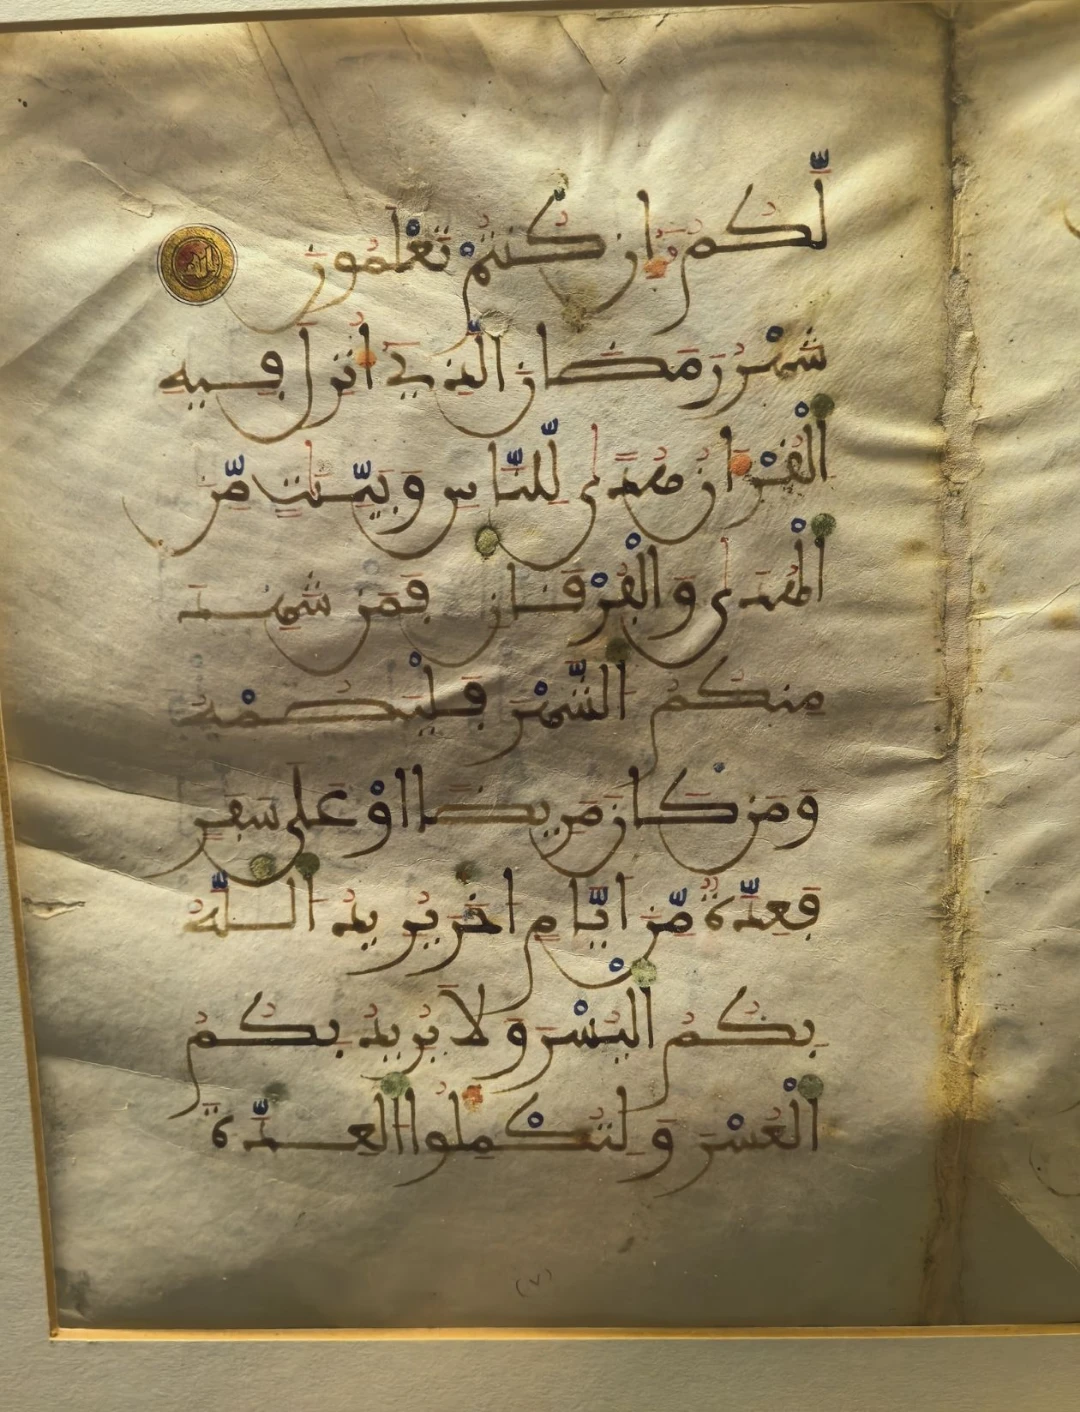 لَّكُمُۥٓ إِن كُنتُمْ تَعْلَمُونَ الله
شَهْرُ رَمَضَانَ الَّذِي أُنزِلَ فِيهِ
الْقُرْءَانُ هُدًى لِّلنَّاسِ وَبَيِّنَٰتٍ مِّنَ
الْهُدَىٰ وَالْفُرْقَانِ فَمَن شَهِدَ
مِنكُمُ الشَّهْرَ فَلْيَصُمْهُ
وَمَن كَانَ مَرِيضًا اَوْ عَلَىٰ سَفَرٍ
فَعِدَّةٌ مِّنَ اَيَّامٍ اخَرَ يُرِيدُ اللَّهُ
بِكُمُ الْيُسْرَ وَلَا يُرِيدُ بِكُمُ
الْعُسْرَ وَلِتُكْمِلُوا الْعِدَّةَ
(٧)